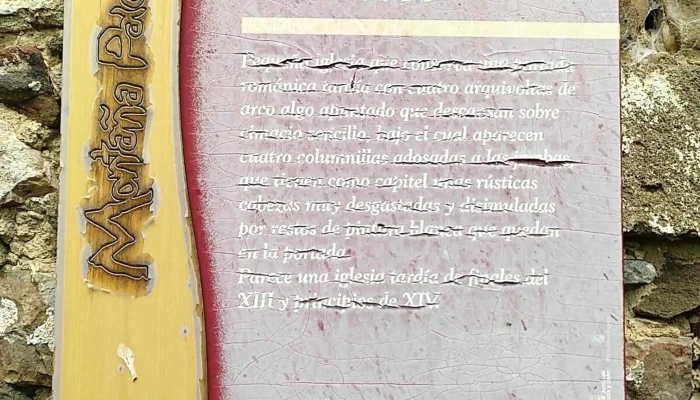 Montaña
Pequeña iglesia que conserva una portada
románica tardía con cuatro arquivoltas de
arco algo apuntado que descansan sobre
cimacio sencillo, bajo el cual aparecen
cuatro columnillas adosadas a las jambas
que tienen como capitel unas rústicas
cabezas muy desgastadas y disimuladas
por restos de pintura blanca que quedan
en la portada
Parece una iglesia tardía de finales del
XIII y principios de XIV.